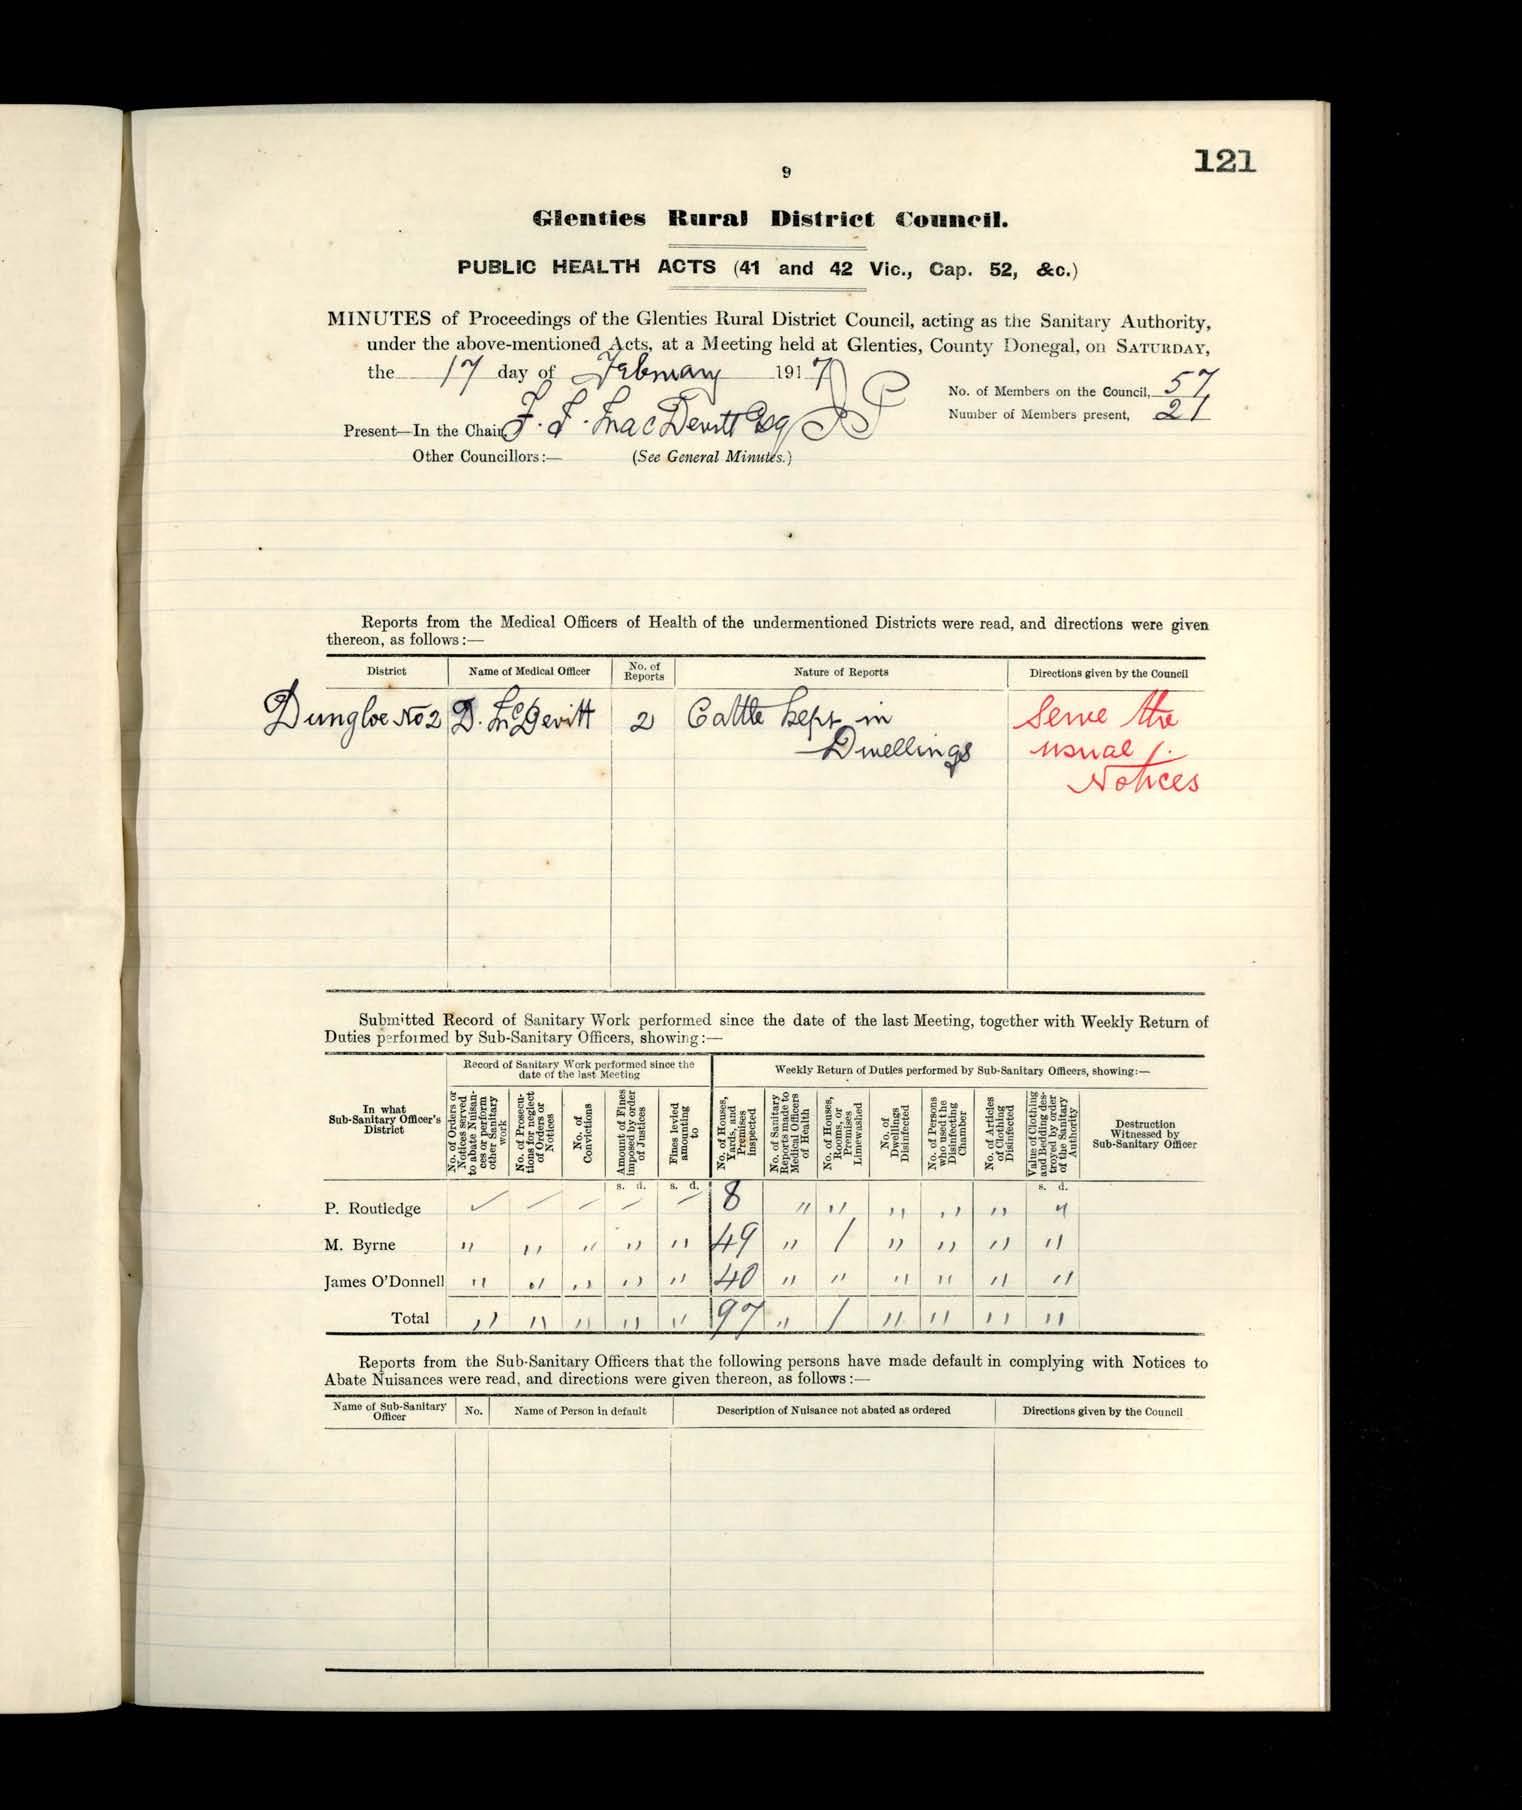 121
9
Glenties Rural District Council.
PUBLIC HEALTH ACTS (41 and 42 Vic., Cap. 52, &c.)
MINUTES of Proceedings of the Glenties Rural District Council, acting as the Sanitary Authority,
under the above-mentioned Acts, at a Meeting held at Glenties, County Donegal, on SATURDAY,
the 17 day of February 1917
No. of Members on the Council, 57
Number of Members present, 21
Present—In the Chair F. J. MacDevitt Esq JP
Other Councillors:— (See General Minutes.)
Reports from the Medical Officers of Health of the undermentioned Districts were read, and directions were given
thereon, as follows:—
District Name of Medical Officer No. of Reports Nature of Reports Directions given by the Council
Dungloe No 2 D. McDevitt 2 Cattle kept in Serve the
Dwellings usual
Notices
Submitted Record of Sanitary Work performed since the date of the last Meeting, together with Weekly Return of
Duties performed by Sub-Sanitary Officers, showing:—
In what Sub-Sanitary Officer's District
Record of Sanitary Work performed since the date of the last Meeting
Weekly Return of Duties performed by Sub-Sanitary Officers, showing:—
No. of Orders or Notices served to abate Nuisances or perform other Sanitary work
No. of Prosecutions for neglect of Orders or Notices
No. of Convictions
Amount of Fines imposed by order of Justices
Fines levied amounting to
No. of Houses, Yards, and Premises inspected
No. of Sanitary Reports made to Medical Officers of Health
No. of Houses, Rooms, or Premises Limewashed
No. of Dwellings Disinfected
No. of Persons who used the Disinfecting Chamber
No. of Articles of Clothing Disinfected
Value of Clothing and Bedding destroyed by order of the Sanitary Authority
Destruction Witnessed by Sub-Sanitary Officer
s. d. s. d. s. d.
P. Routledge ✓ — — — — 8 " " " " " "
M. Byrne " " " " " 49 " 1 " " " "
James O'Donnell " " " " " 40 " " " " " "
Total " " " " " 97 " 1 " " " "
Reports from the Sub-Sanitary Officers that the following persons have made default in complying with Notices to
Abate Nuisances were read, and directions were given thereon, as follows:—
Name of Sub-Sanitary Officer No. Name of Person in default Description of Nuisance not abated as ordered Directions given by the Council